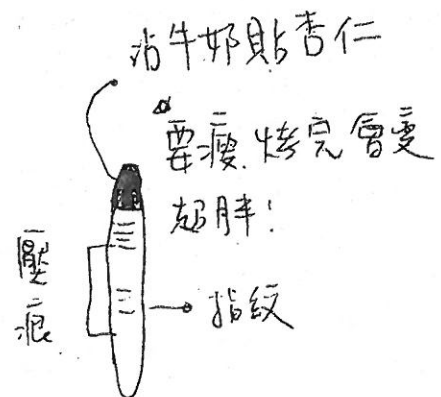 沾牛奶貼杏仁
要瘦.烤完會變
超胖!
壓痕
指紋